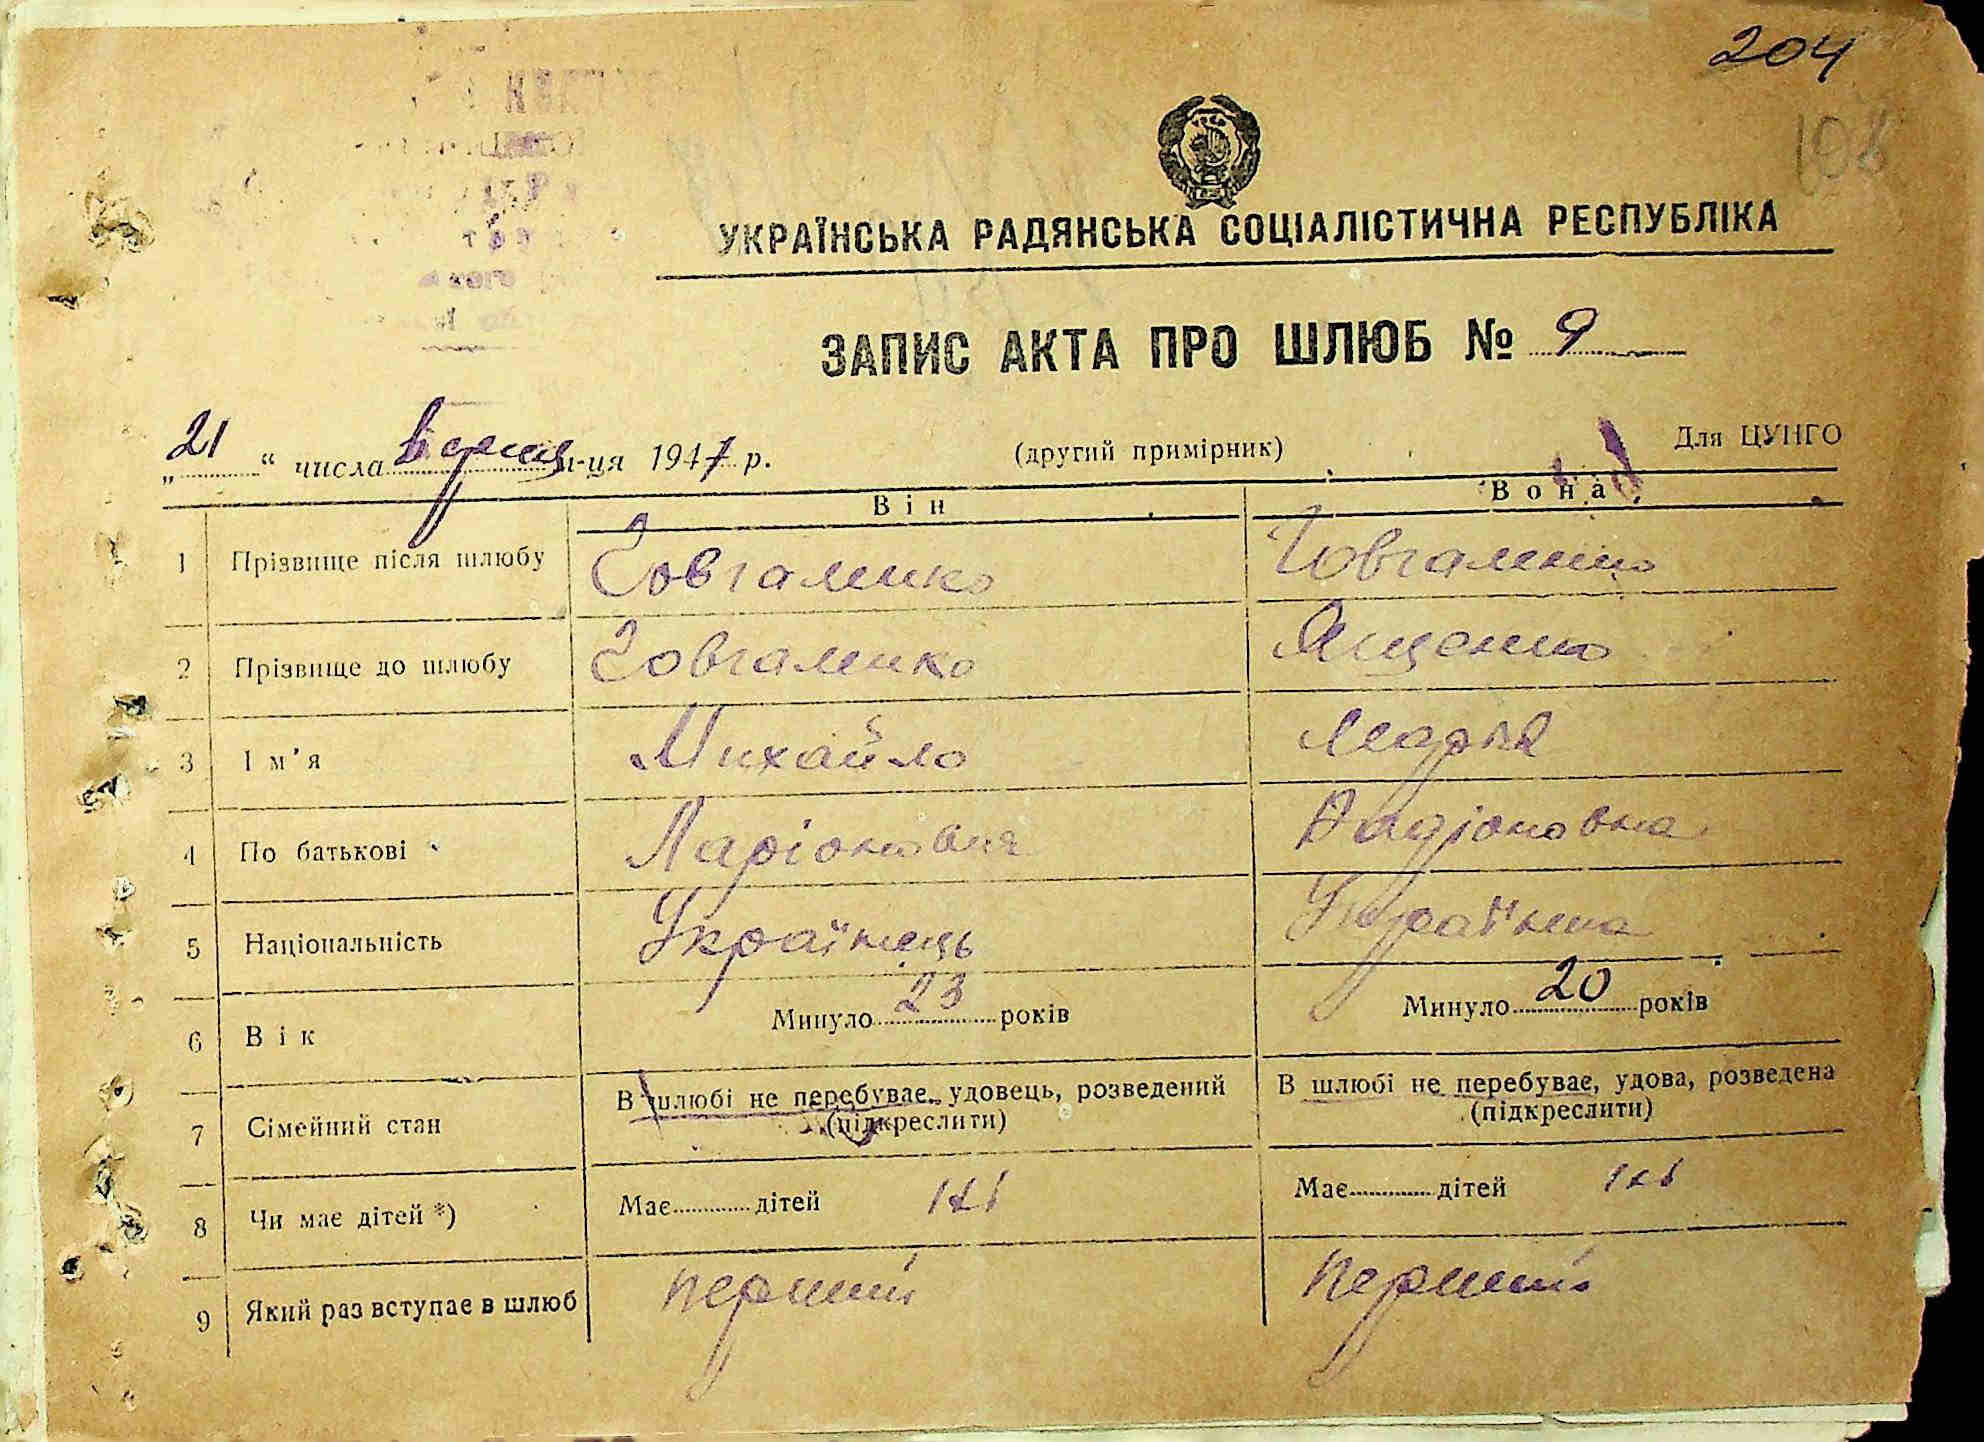 204
108
УКРАЇНСЬКА РАДЯНСЬКА СОЦІАЛІСТИЧНА РЕСПУБЛІКА
ЗАПИС АКТА ПРО ШЛЮБ № 9
„21“ числа м-ця 1947 р. (другий примірник) Для ЦУНГО
Він Вона
1 Прізвище після шлюбу Довгаленко Довгаленко
2 Прізвище до шлюбу Довгаленко Ященко
3 Ім'я Михайло Марія
4 По батькові Ларіонович Радіоновна
5 Національність Українець Українка
6 Вік Минуло 23 років Минуло 20 років
7 Сімейний стан В шлюбі не перебуває, удовець, розведений В шлюбі не перебуває, удова, розведена
(підкреслити) (підкреслити)
8 Чи має дітей *) Має дітей Має дітей
9 Який раз вступає в шлюб перший перший